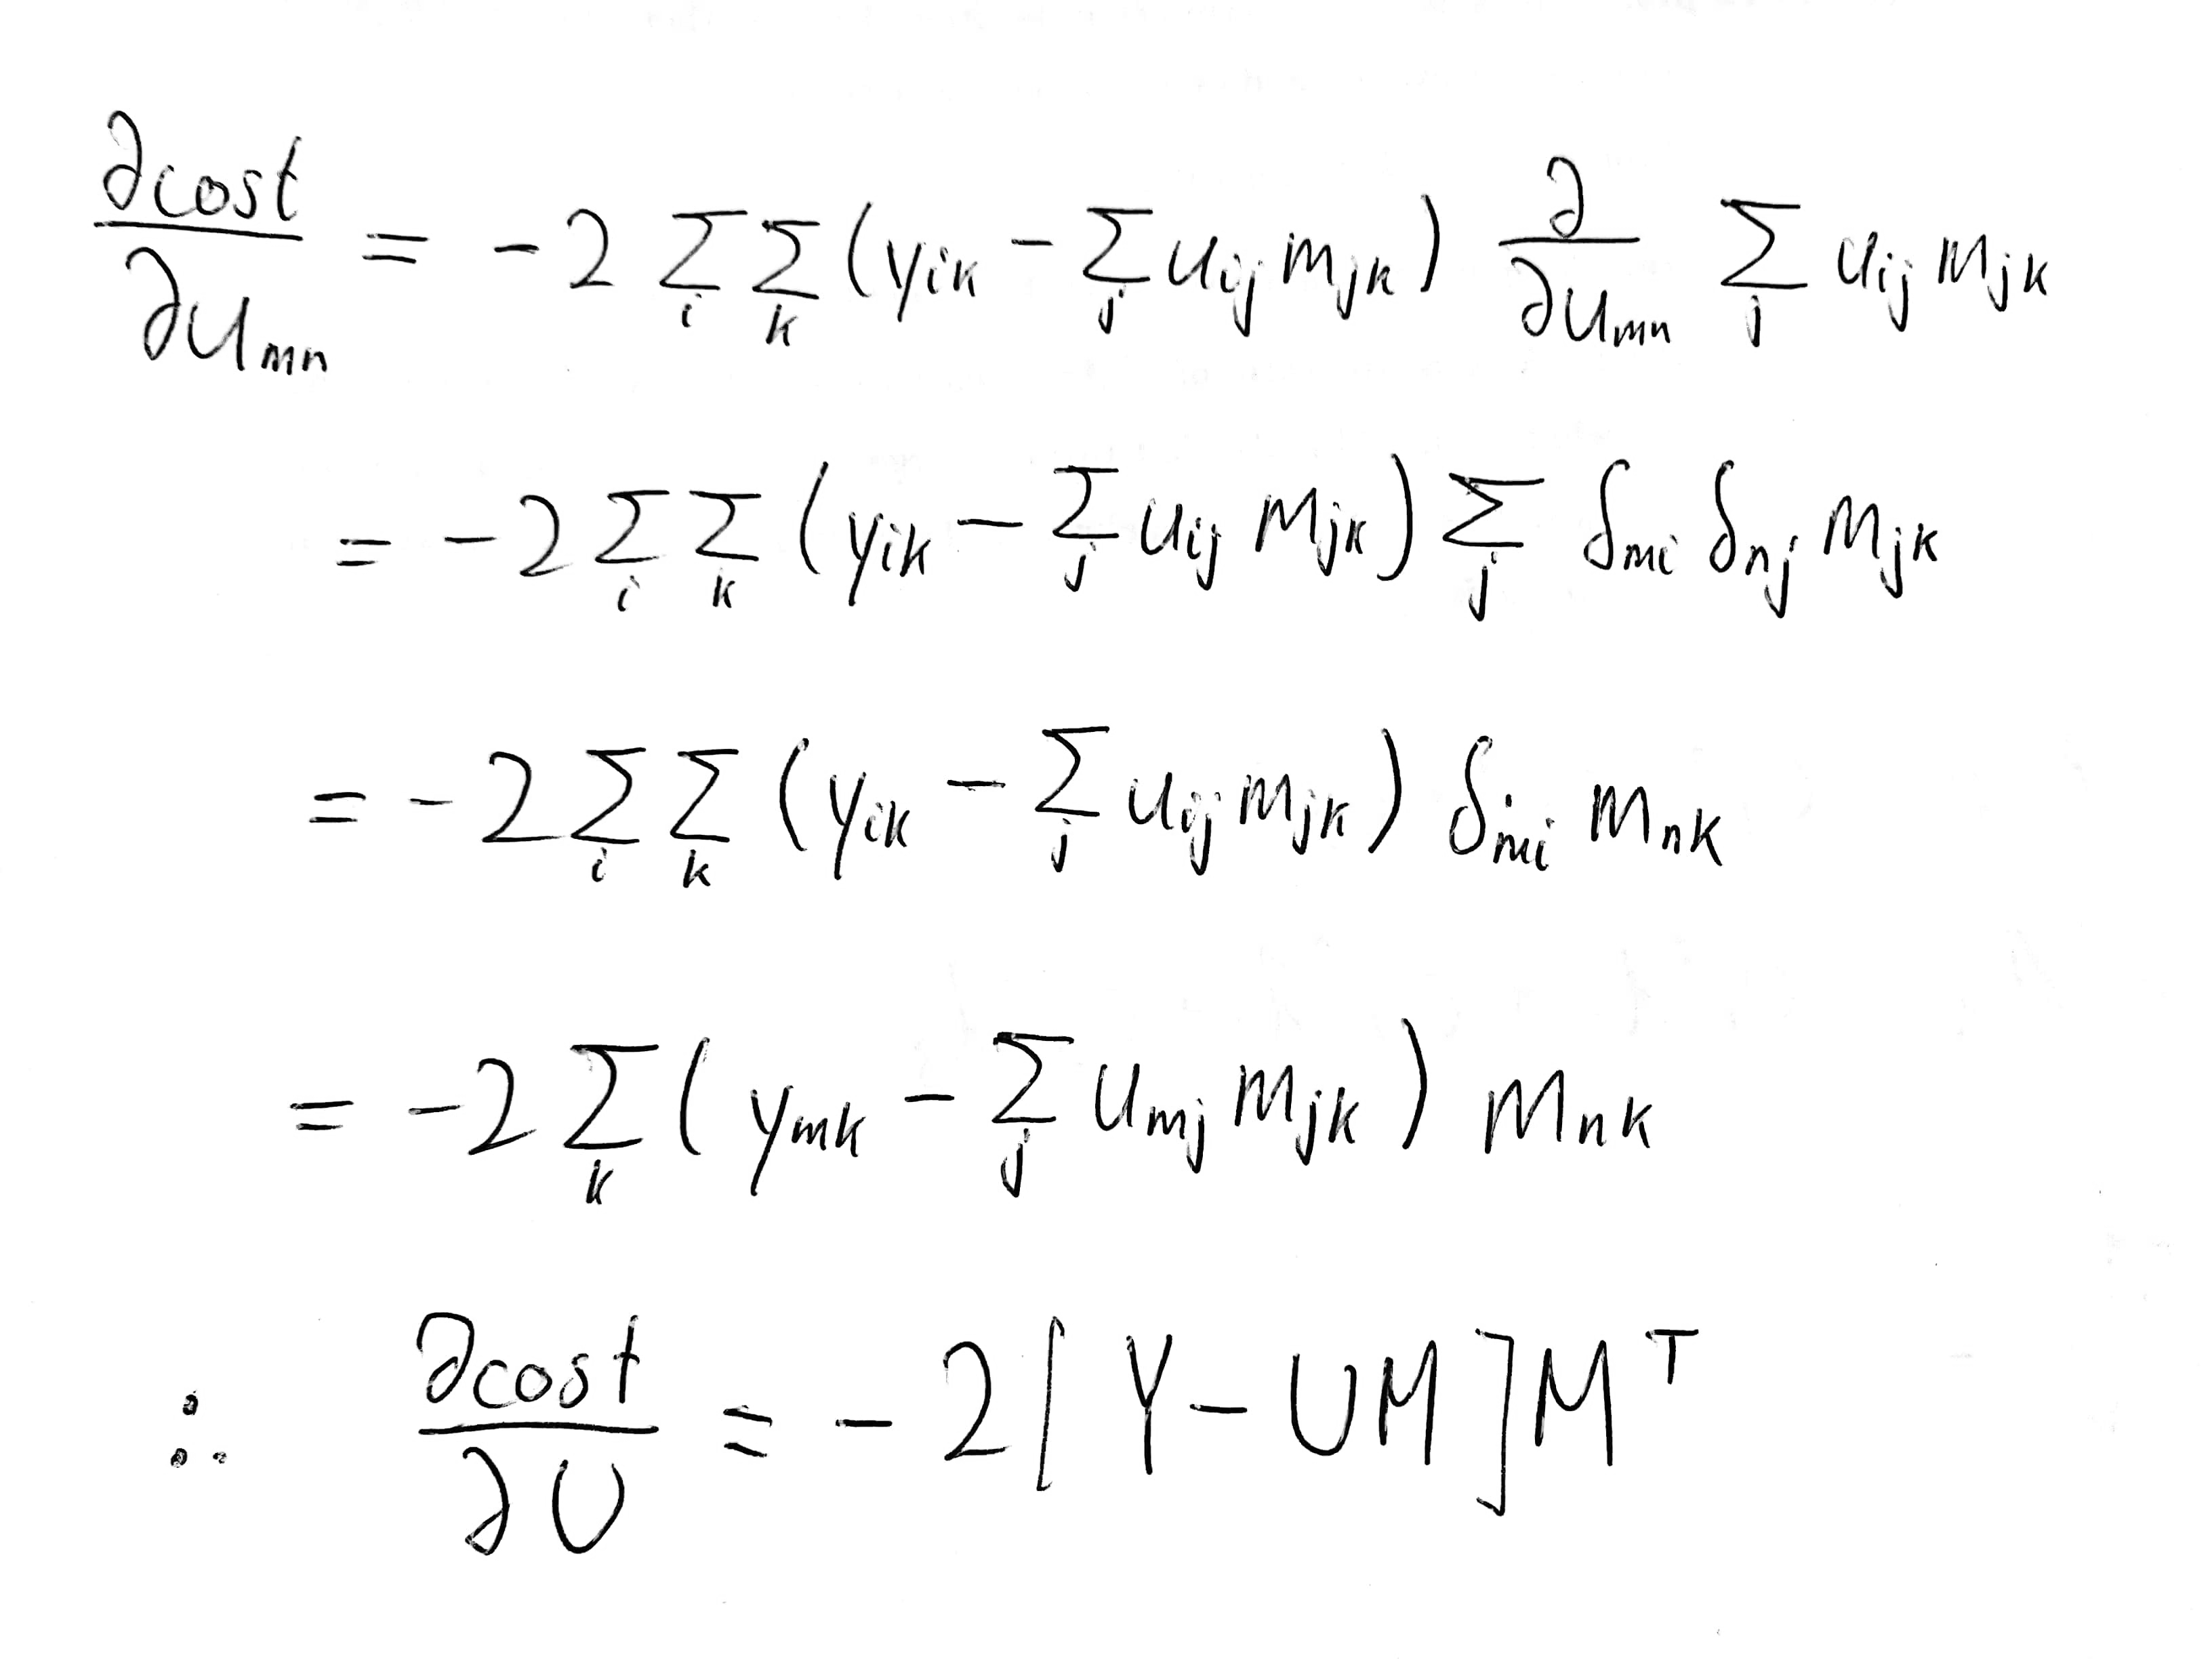 ∂cost/∂u_mn = -2 Σ_i Σ_k (y_ik - Σ_j u_ij m_jk) ∂/∂u_mn Σ_j u_ij m_jk
= -2 Σ_i Σ_k (y_ik - Σ_j u_ij m_jk) Σ_j δ_mi δ_nj m_jk
= -2 Σ_i Σ_k (y_ik - Σ_j u_ij m_jk) δ_mi m_nk
= -2 Σ_k (y_mk - Σ_j u_mj m_jk) m_nk
∴ ∂cost/∂U = -2[Y - UM]M^T